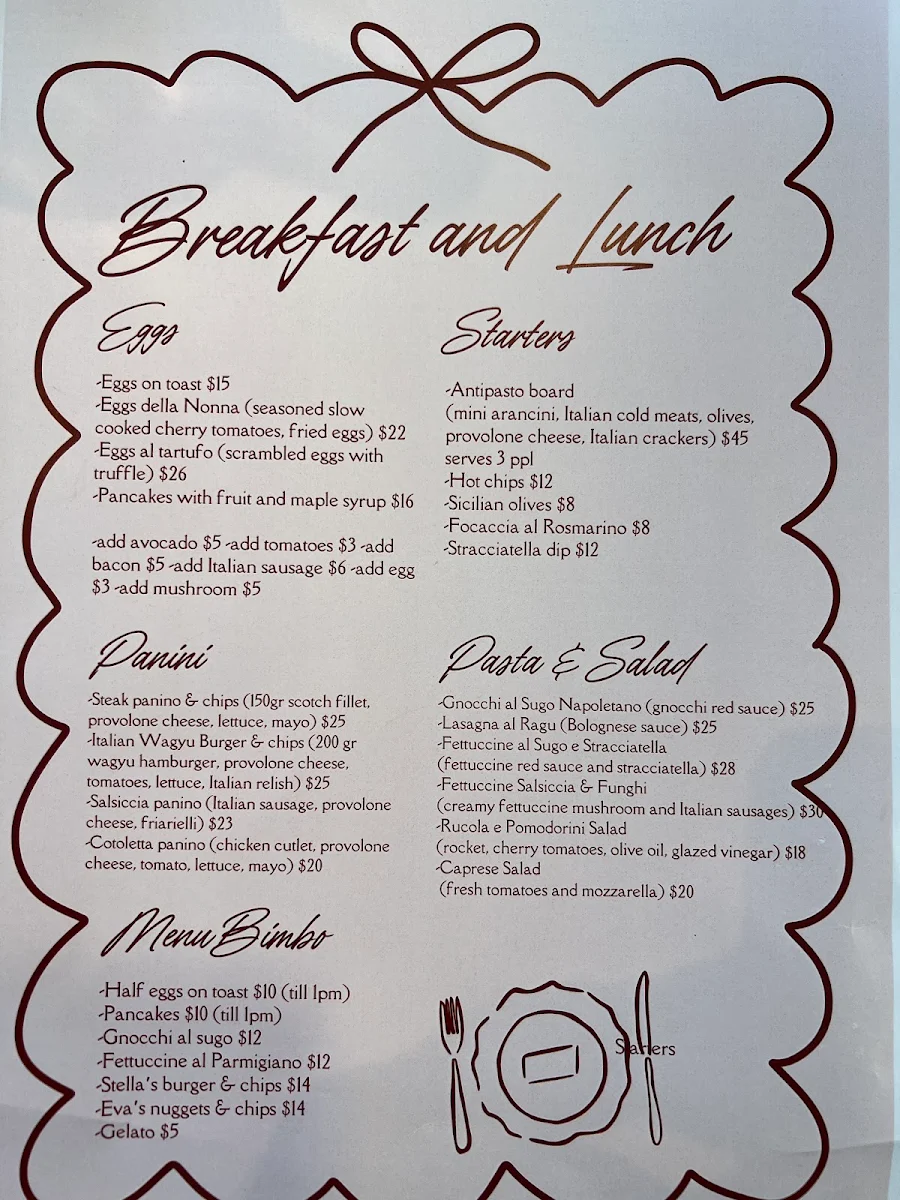 Breakfast and Lunch
Eggs
-Eggs on toast $15
-Eggs della Nonna (seasoned slow
cooked cherry tomatoes, fried eggs) $22
-Eggs al tartufo (scrambled eggs with
truffle) $26
-Pancakes with fruit and maple syrup $16
-add avocado $5 -add tomatoes $3 -add
bacon $5 -add Italian sausage $6 -add egg
$3 -add mushroom $5
Starters
-Antipasto board
(mini arancini, Italian cold meats, olives,
provolone cheese, Italian crackers) $45
serves 3 ppl
-Hot chips $12
-Sicilian olives $8
-Focaccia al Rosmarino $8
-Stracciatella dip $12
Panini
-Steak panino & chips (150gr scotch fillet,
provolone cheese, lettuce, mayo) $25
-Italian Wagyu Burger & chips (200 gr
wagyu hamburger, provolone cheese,
tomatoes, lettuce, Italian relish) $25
-Salsiccia panino (Italian sausage, provolone
cheese, friarielli) $23
-Cotoletta panino (chicken cutlet, provolone
cheese, tomato, lettuce, mayo) $20
Pasta & Salad
-Gnocchi al Sugo Napoletano (gnocchi red sauce) $25
-Lasagna al Ragu (Bolognese sauce) $25
-Fettuccine al Sugo e Stracciatella
(fettuccine red sauce and stracciatella) $28
-Fettuccine Salsiccia & Funghi
(creamy fettuccine mushroom and Italian sausages) $30
-Rucola e Pomodorini Salad
(rocket, cherry tomatoes, olive oil, glazed vinegar) $18
-Caprese Salad
(fresh tomatoes and mozzarella) $20
Menu Bimbo
-Half eggs on toast $10 (till 1pm)
-Pancakes $10 (till 1pm)
-Gnocchi al sugo $12
-Fettuccine al Parmigiano $12
-Stella's burger & chips $14
-Eva's nuggets & chips $14
-Gelato $5
Starters